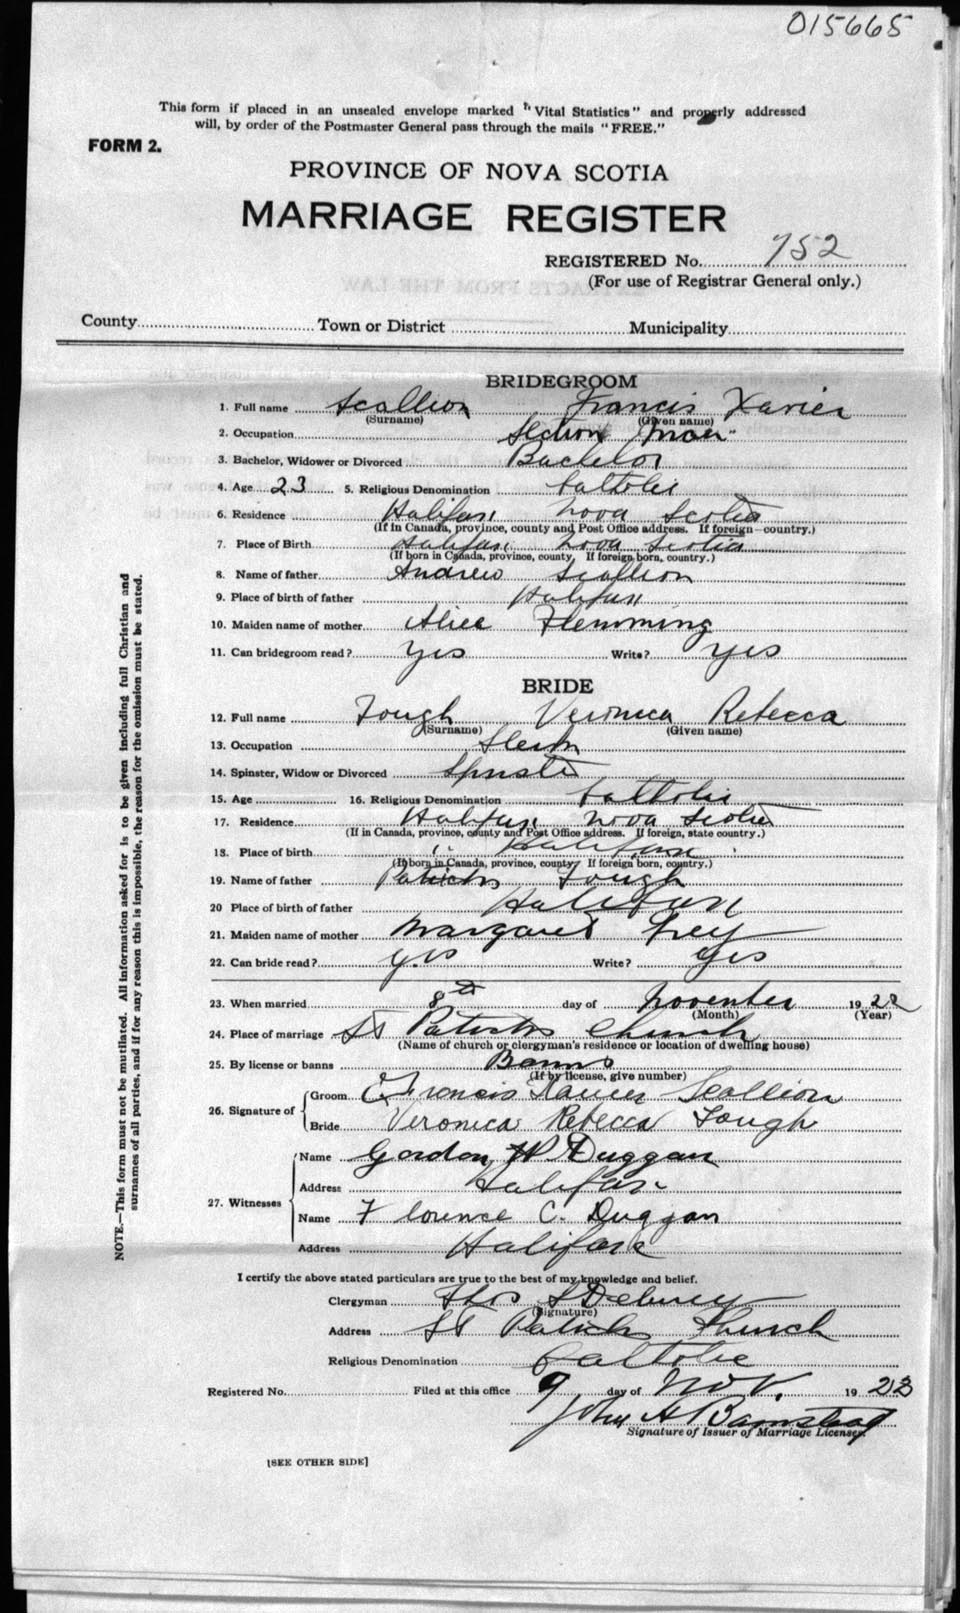 015665
This form if placed in an unsealed envelope marked "Vital Statistics" and properly addressed
will, by order of the Postmaster General pass through the mails "FREE."
FORM 2.
PROVINCE OF NOVA SCOTIA
MARRIAGE REGISTER
REGISTERED No. 752
(For use of Registrar General only.)
County Town or District Municipality
BRIDEGROOM
1. Full name Scallion Francis Xavier
(Surname) (Given name)
2. Occupation Section Man
3. Bachelor, Widower or Divorced Bachelor
4. Age 23 5. Religious Denomination Catholic
6. Residence Halifax Nova Scotia
(If in Canada, province, county and Post Office address. If foreign country.)
7. Place of Birth Halifax Nova Scotia
(If born in Canada, province, county, If foreign born, country.)
8. Name of father Andrew Scallion
9. Place of birth of father Halifax
10. Maiden name of mother Alice Flemming
11. Can bridegroom read? yes Write? yes
BRIDE
12. Full name Tough Veronica Rebecca
(Surname) (Given name)
13. Occupation
14. Spinster, Widow or Divorced Spinster
15. Age 16. Religious Denomination Catholic
17. Residence Halifax Nova Scotia
(If in Canada, province, county and Post Office address. If foreign, state country.)
18. Place of birth " Halifax
(If born in Canada, province, county. If foreign born, country.)
19. Name of father Patrick Tough
20 Place of birth of father Halifax
21. Maiden name of mother Margaret
22. Can bride read? yes Write? yes
23. When married 8th day of November 1922
(Month) (Year)
24. Place of marriage St Patricks Church
(Name of church or clergyman's residence or location of dwelling house)
25. By license or banns Banns
(If by license, give number)
26. Signature of Groom Francis Xavier Scallion
Bride Veronica Rebecca Tough
27. Witnesses Name Gordon W Duggan
Address Halifax
Name Florence C. Duggan
Address Halifax
I certify the above stated particulars are true to the best of my knowledge and belief.
Clergyman Thos
(Signature)
Address St Patricks Church
Religious Denomination Catholic
Registered No. Filed at this office 9 day of Nov. 19
John H Barnstead
Signature of Issuer of Marriage Licenses.
[SEE OTHER SIDE]
NOTE.—This form must not be mutilated. All information asked for is to be given including full Christian and
surnames of all parties, and if for any reason this is impossible, the reason for the omission must be stated.